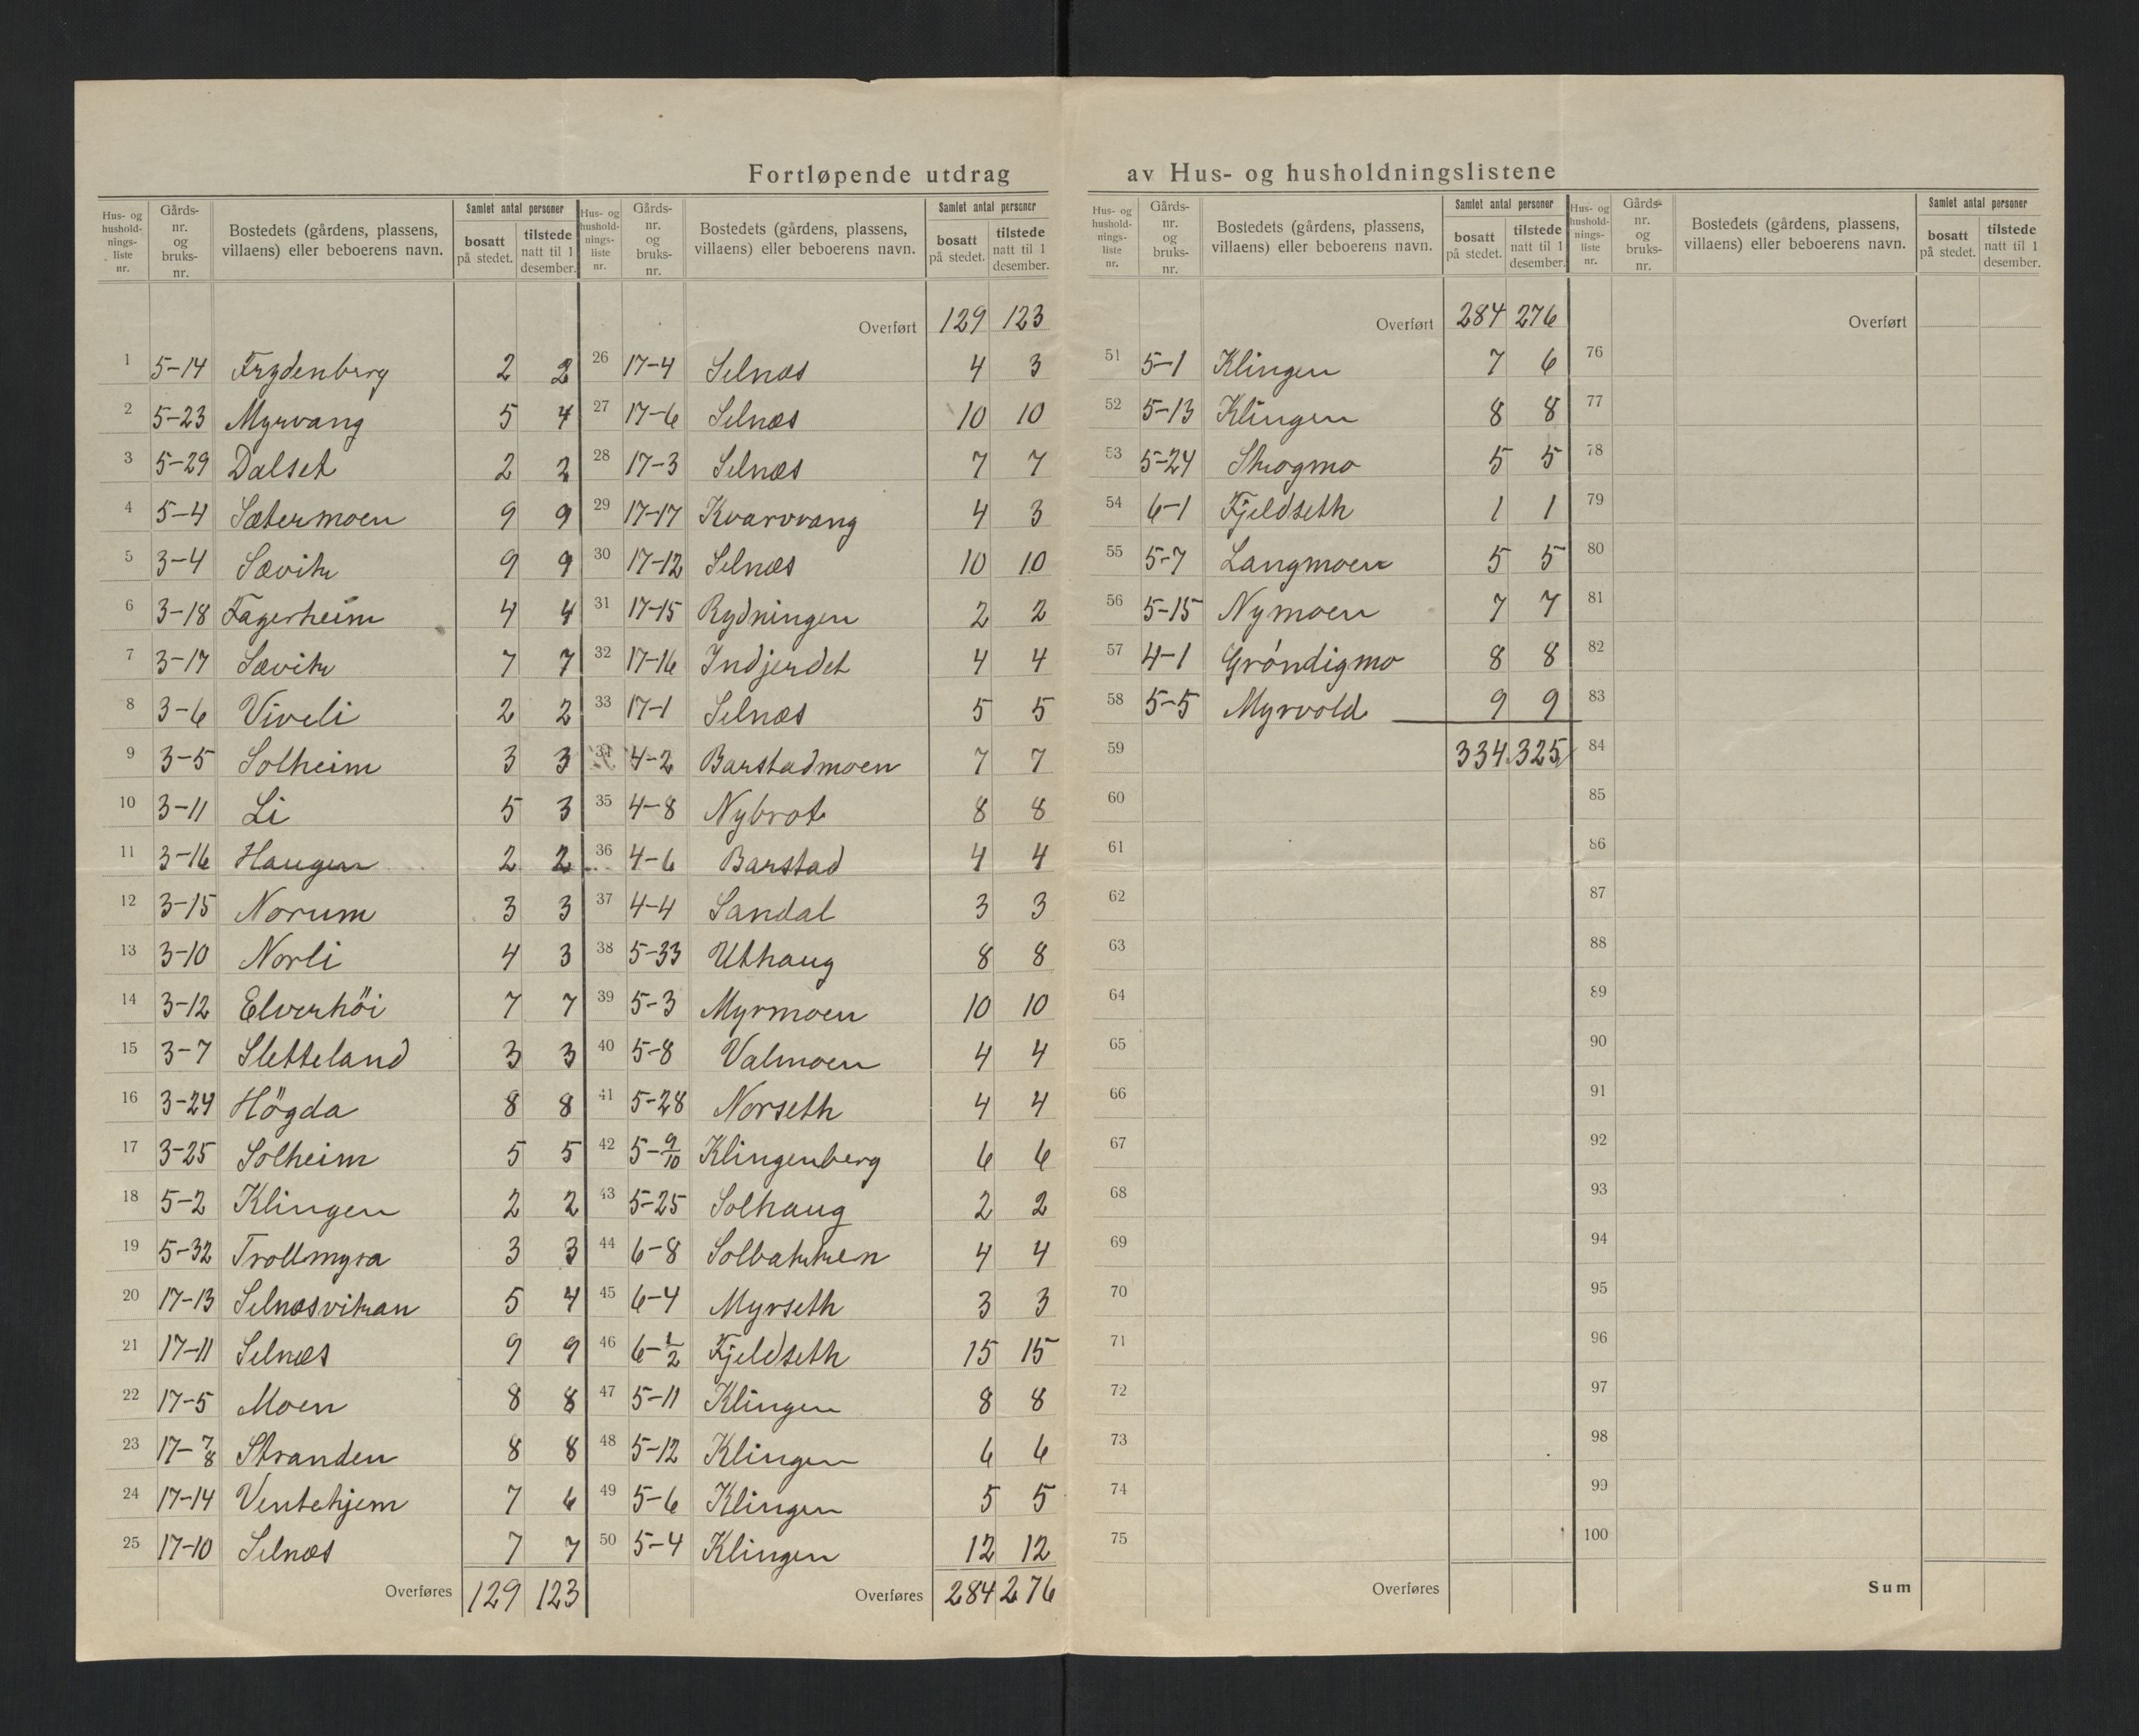 Fortløpende utdrag av Hus- og husholdningslistene
Hus- og hushold- nings- liste nr. Gårds- nr. og bruks- nr. Bostedets (gårdens, plassens, villaens) eller beboerens navn. Samlet antal personer bosatt på stedet. tilstede natt til 1 desember.
1 5-14 Frydenberg 2 2
2 5-23 Myrvang 5 4
3 5-29 Dalset 2 2
4 5-4 Sætermoen 9 9
5 3-4 Sævik 9 9
6 3-18 Fagerheim 4 4
7 3-17 Sævik 7 7
8 3-6 Viveli 2 2
9 3-5 Solheim 3 3
10 3-11 Li 5 3
11 3-16 Haugen 2 2
12 3-15 Norum 3 3
13 3-10 Norli 4 3
14 3-12 Elverhöi 7 7
15 3-7 Sletteland 3 3
16 3-24 Högda 8 8
17 3-25 Solheim 5 5
18 5-2 Klingen 2 2
19 5-32 Trollmyra 3 3
20 17-13 Selnæsvikan 5 4
21 17-11 Selnæs 9 9
22 17-5 Moen 8 8
23 17-7/8 Stranden 8 8
24 17-14 Ventehjem 7 6
25 17-10 Selnæs 7 7
Overføres 129 123
Hus- og hushold- nings- liste nr. Gårds- nr. og bruks- nr. Bostedets (gårdens, plassens, villaens) eller beboerens navn. Samlet antal personer bosatt på stedet. tilstede natt til 1 desember.
Overført 129 123
26 17-4 Selnæs 4 3
27 17-6 Selnæs 10 10
28 17-3 Selnæs 7 7
29 17-17 Kvarvvang 4 3
30 17-12 Selnæs 10 10
31 17-15 Rydningen 2 2
32 17-16 Indjerdet 4 4
33 17-1 Selnæs 5 5
34 4-2 Barstadmoen 7 7
35 4-8 Nybrot 8 8
36 4-6 Barstad 4 4
37 4-4 Sandal 3 3
38 5-33 Uthaug 8 8
39 5-3 Myrmoen 10 10
40 5-8 Valmoen 4 4
41 5-28 Norseth 4 4
42 5-9/10 Klingenberg 6 6
43 5-25 Solhaug 2 2
44 6-8 Solbakken 4 4
45 6-4 Myrseth 3 3
46 6-1/2 Fjeldseth 15 15
47 5-11 Klingen 8 8
48 5-12 Klingen 6 6
49 5-6 Klingen 5 5
50 5-4 Klingen 12 12
Overføres 284 276
Hus- og hushold- nings- liste nr. Gårds- nr. og bruks- nr. Bostedets (gårdens, plassens, villaens) eller beboerens navn. Samlet antal personer bosatt på stedet. tilstede natt til 1 desember.
Overført 284 276
51 5-1 Klingen 7 6
52 5-13 Klingen 8 8
53 5-24 Skogmo 5 5
54 6-1 Fjeldseth 1 1
55 5-7 Langmoen 5 5
56 5-15 Nymoen 7 7
57 4-1 Gröndigmo 8 8
58 5-5 Myrvold 9 9
59 334 325
60
61
62
63
64
65
66
67
68
69
70
71
72
73
74
75
Overføres
Hus- og hushold- nings- liste nr. Gårds- nr. og bruks- nr. Bostedets (gårdens, plassens, villaens) eller beboerens navn. Samlet antal personer bosatt på stedet. tilstede natt til 1 desember.
Overført
76
77
78
79
80
81
82
83
84
85
86
87
88
89
90
91
92
93
94
95
96
97
98
99
100
Sum